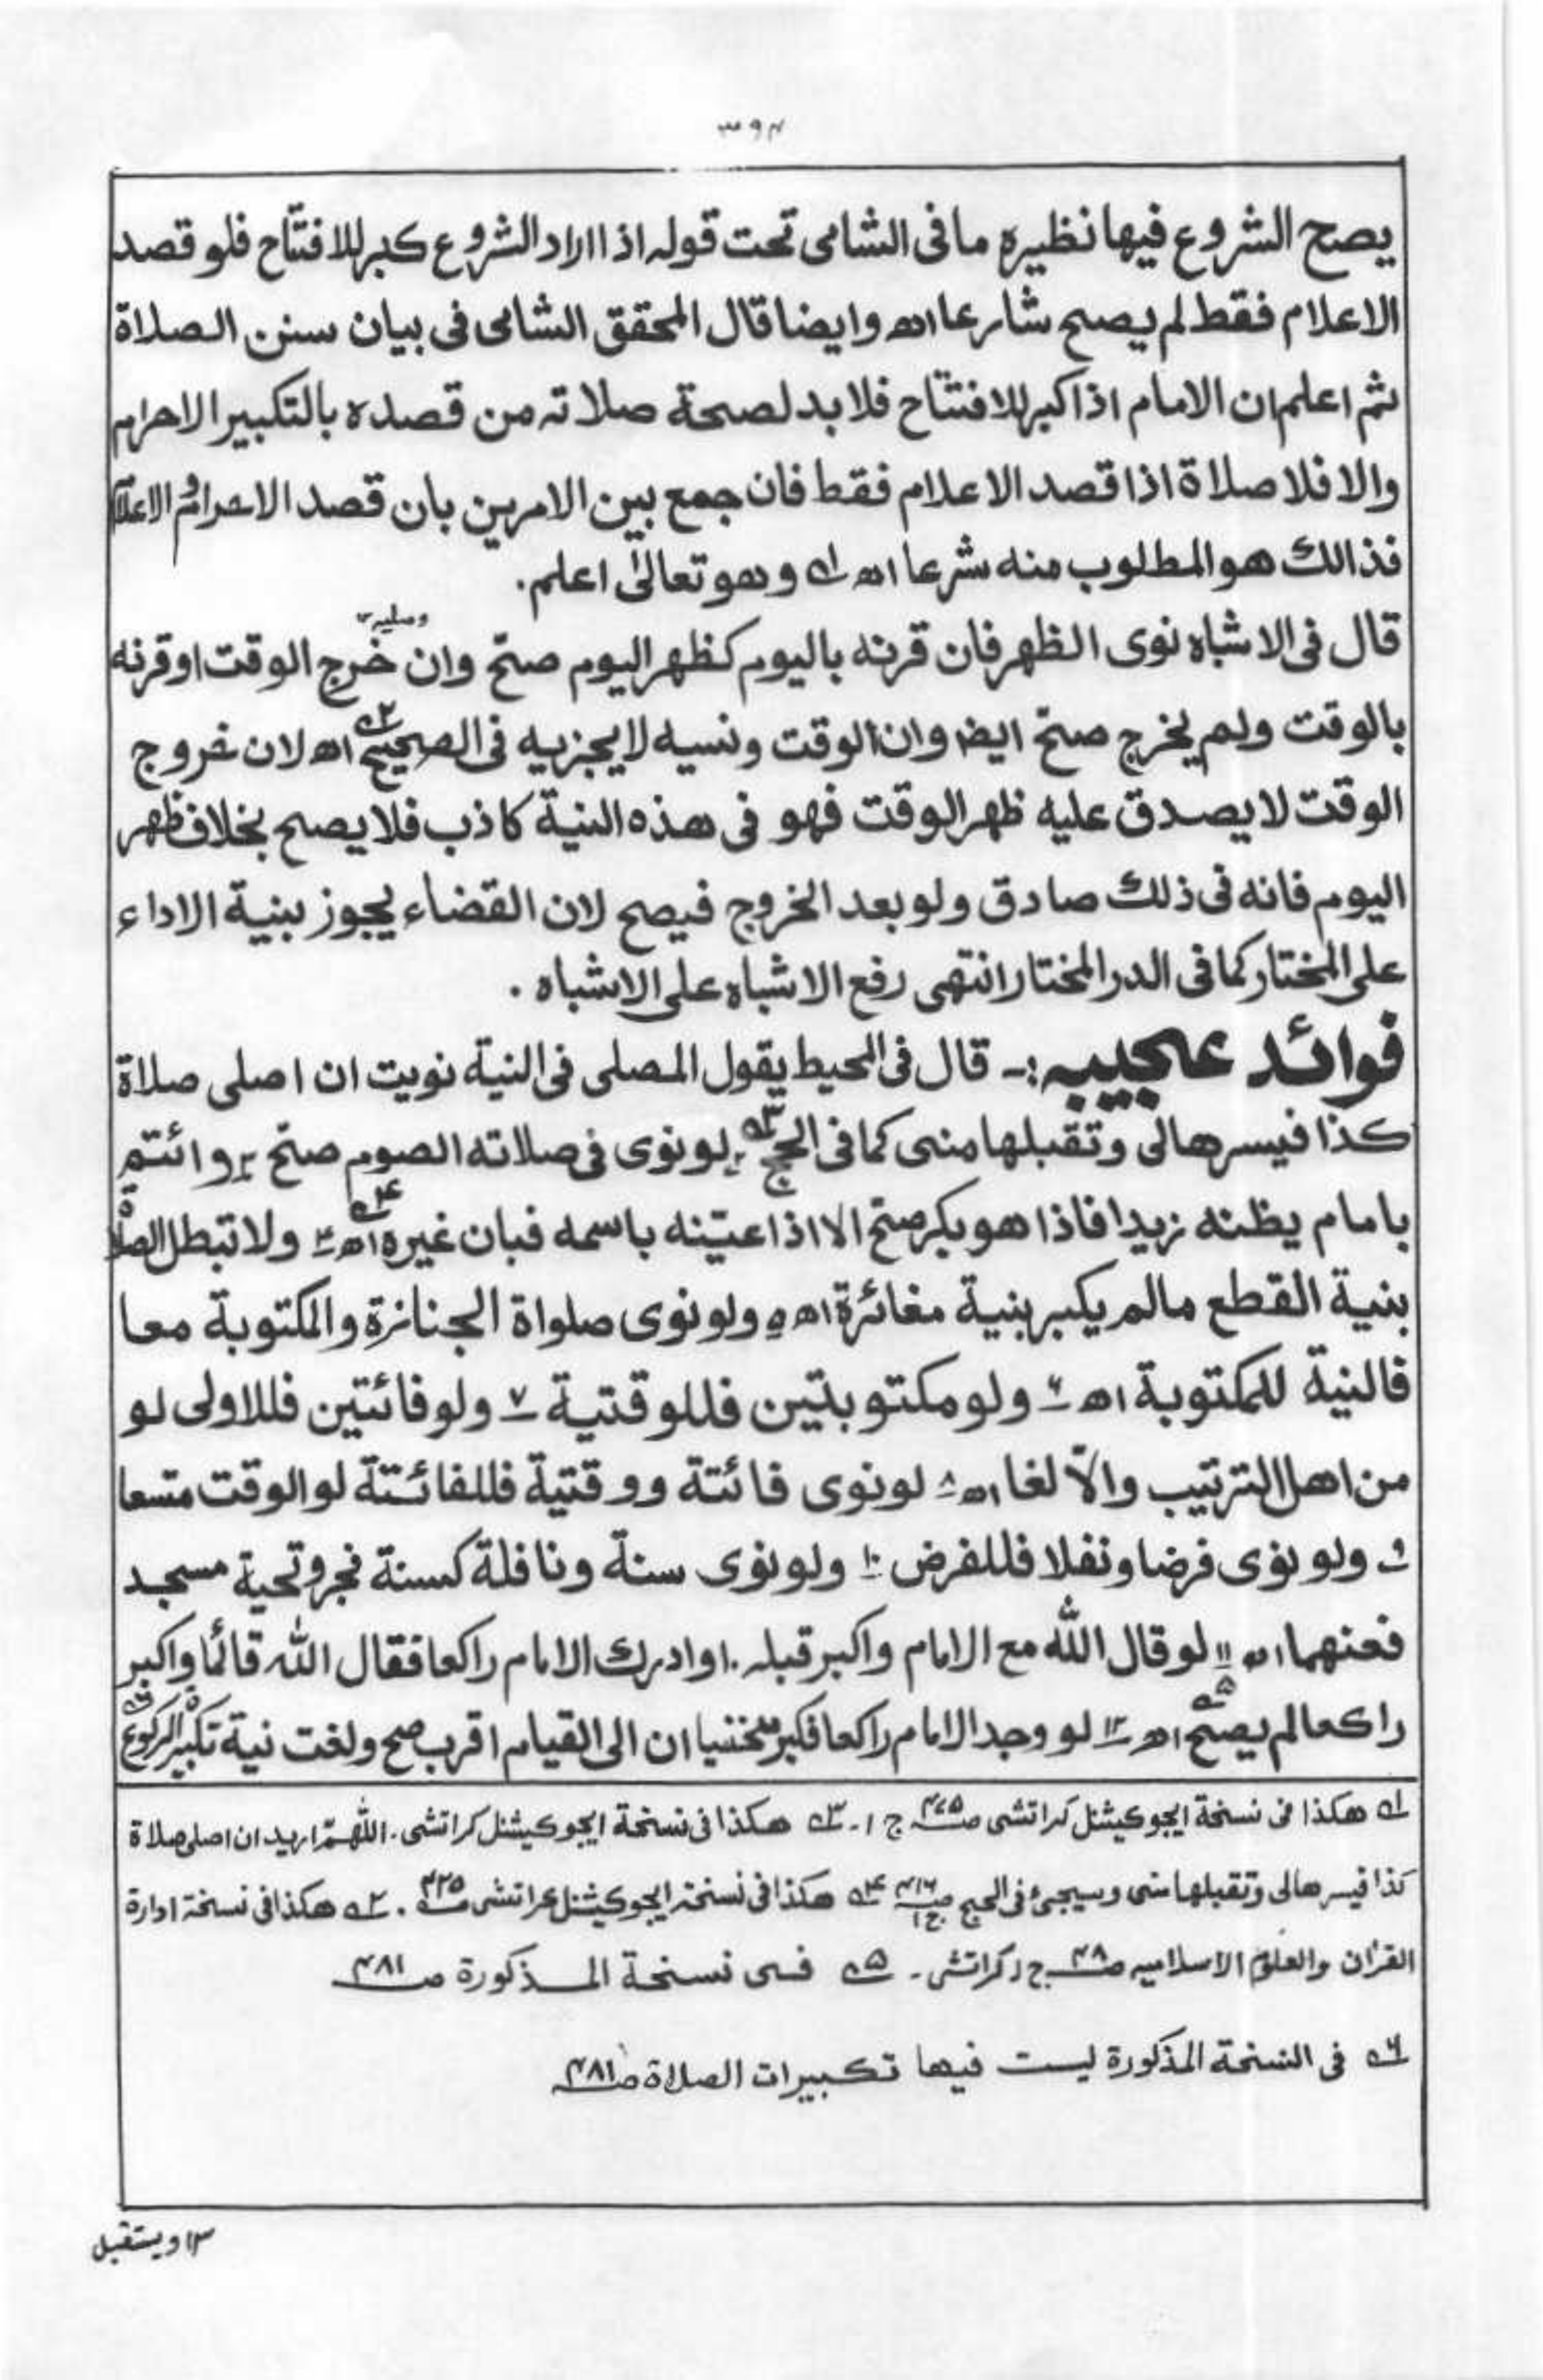 ۳۹۴
يصح الشروع فيها نظيره ما فى الشامى تحت قوله اذا اراد الشروع كبر للافتتاح فلو قصد
الاعلام فقط لم يصح شارعا اھ وايضا قال المحقق الشامى فى بيان سنن الصلاة
ثم اعلم ان الامام اذا كبر للافتتاح فلا بد لصحة صلاته من قصده بالتكبير الاحرام
والا فلا صلاة اذا قصد الاعلام فقط فان جمع بين الامرين بان قصد الاحرام والاعلام
فذالك هو المطلوب منه شرعا اھ لہ وهو تعالىٰ اعلم.
قال فى الاشباه نوى الظهر فان قرنه باليوم كظهر اليوم صحّ وان خرج الوقت او قرنه
وصلیہ
بالوقت ولم يخرج صحّ ايضا وان الوقت ونسيه لا يجزيه فى الصحيح ۲ اھ لان خروج
الوقت لا يصدق عليه ظهر الوقت فهو فى هذه النية كاذب فلا يصح بخلاف ظهر
اليوم فانه فى ذلك صادق ولو بعد الخروج فيصح لان القضاء يجوز بنية الاداء
على المختار كما فى الدر المختار انتهى رفع الاشباه على الاشباه .
فوائد عجيبه :- قال فى المحيط يقول المصلى فى النية نويت ان اصلى صلاة
كذا فيسرها لى وتقبلها منى كما فى الحج ۳ لو نوى فى صلاته الصوم صحّ ۲ وائتم
بامام يظنه زيدا فاذا هو بكر صحّ الا اذا عيّنه باسمه فبان غيره ۴ اھ ولا تبطل الصلاة
بنية القطع مالم يكبر بنية مغائرة اھ ۵ ولو نوى صلواة الجنازة والمكتوبة معا
فالنية للمكتوبة اھ ۶ ولو مكتوبتين فللوقتية ۷ ولو فائتتين فللاولى لو
من اهل الترتيب والّا لغا اھ ۸ لو نوى فائتة ووقتية فللفائتة لو الوقت متسعا
۹ ولو نوى فرضا ونفلا فللفرض ۱۰ ولو نوى سنة ونافلة كسنة فجر وتحية مسجد
فعنهما اھ ۱۱ لو قال الله مع الامام واكبر قبله . او ادرك الامام راكعا فقال الله قائما واكبر
راكعا لم يصحّ ۵ اھ ۱۲ لو وجد الامام راكعا فكبر منحنيا ان الى القيام اقرب صح ولغت نية تكبير الركوع ۶
لہ هكذا فى نسخة ايجوكيشنل كراتشى صـ ۴۷۵ ج ۱ . ۳ هكذا فى نسخة ايجوكيشنل كراتشى . اللّٰهمّ اريد ان اصلى صلاة
كذا فيسرها لى وتقبلها منى وسيجئ فى الحج صـ ۴۱۶ ج ۱ ۴ هكذا فى نسخة ايجوكيشنل كراتشى صـ ۴۲۵ . ۲ هكذا فى نسخة ادارة
القرآن والعلوم الاسلاميه صـ ۴۸ ج ۱ كراتشى . ۵ فى نسخة المذكورة صـ ۴۸۱
۶ فى النسخة المذكورة ليست فيها تكبيرات الصلاة صـ ۴۸۱
۱۳ ويستقبل